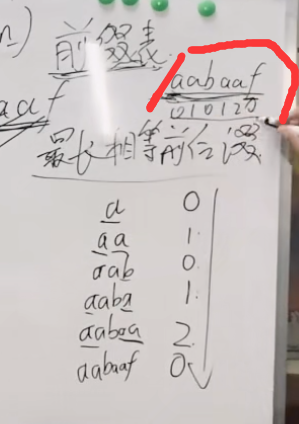 n)
前缀表
aabaaf
aaf
010120
最长相等前后缀
a 0
aa 1
aab 0
aaba 1
aabaa 2
aabaaf 0